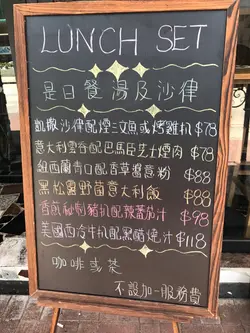 LUNCH SET
是日餐湯及沙律
凱撒沙律配煙三文魚或烤雞扒 $78
意大利雲吞配巴馬臣芝士煙肉 $78
紐西蘭青口配香草濃意粉 $88
黑松露野菌意大利飯 $88
香煎秘制豬扒配辣蕃茄汁 $98
美國西冷牛扒配黑醋燒汁 $118
咖啡或茶
不設加一服務費